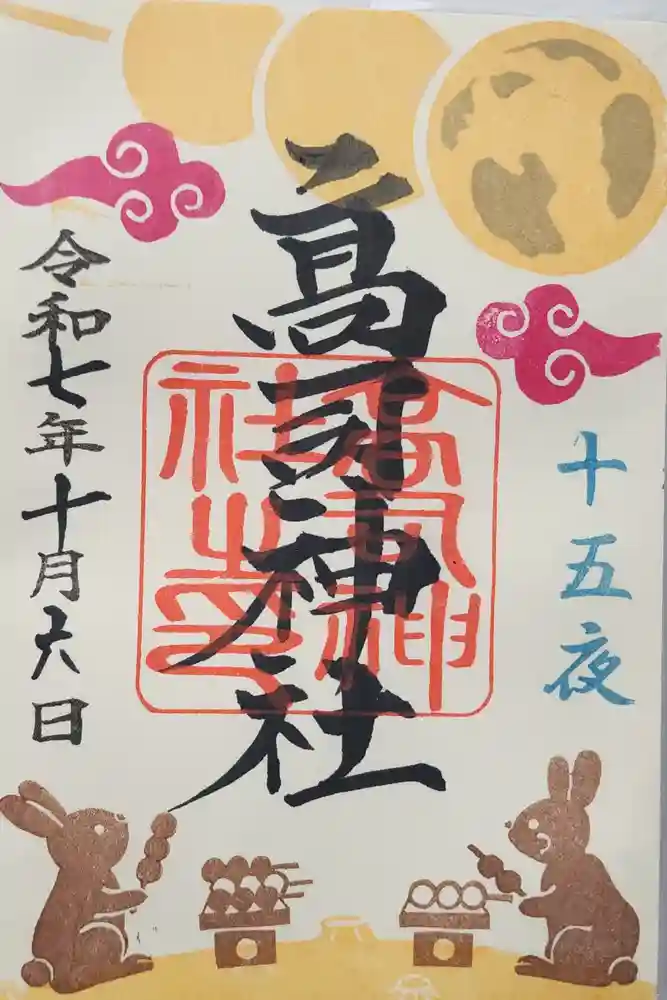 十五夜
高司神社
高司神
社之印
令和七年十月六日